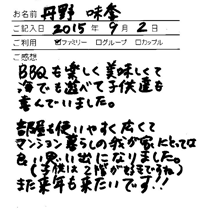 お名前 丹野 味季
ご記入日 2015年9月2日
ご利用 ☑ファミリー □グループ □カップル
ご感想
BBQも楽しく美味しくて
海でも遊べて子供達も
喜んでいました。
部屋も使いやすく広くて
マンション暮らしの我が家にとっては
良い思い出になりました。
(子供は2階が好きですね)
また来年も来たいです!!